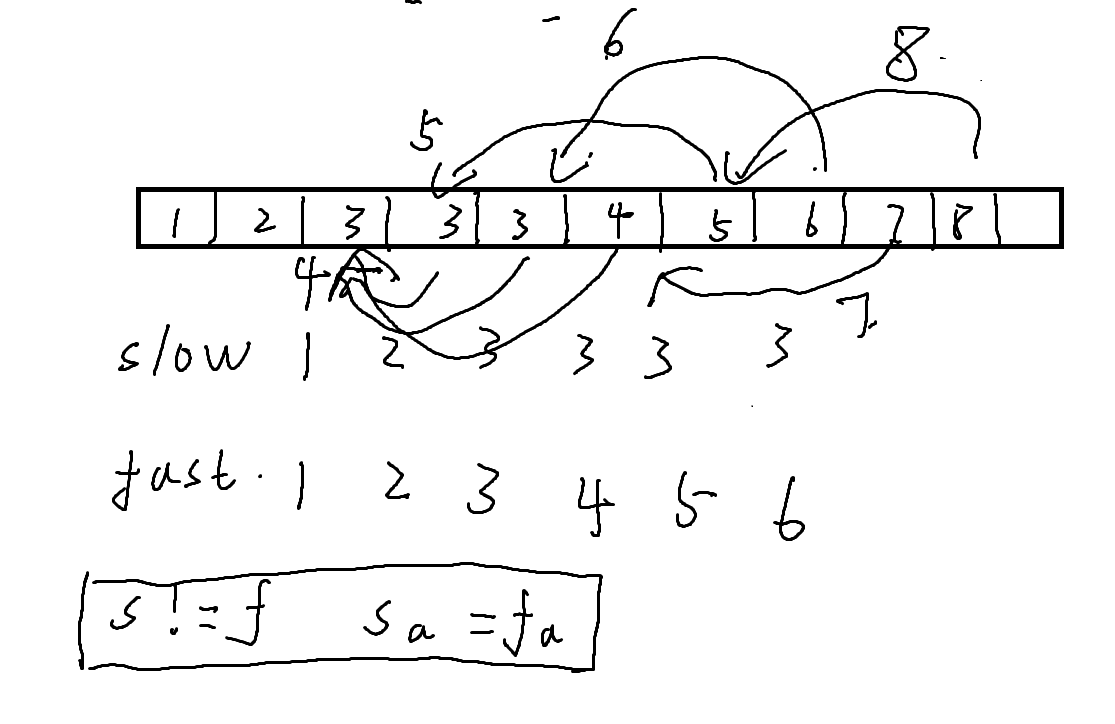 6 8
5
1 2 3 3 3 4 5 6 7 8
4 7
slow 1 2 3 3 3 3
fast. 1 2 3 4 5 6
s != f sa = fa